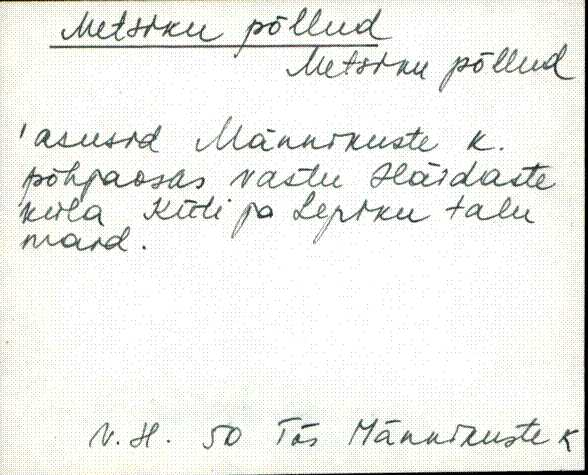 Metsiku põllud
Metsiku põllud
'asusid Männikuste k.
põhjaosas vastu Häidaste
küla Küti ja Lepiku talu
maid.
V. H. 50 Tõs Männikuste k